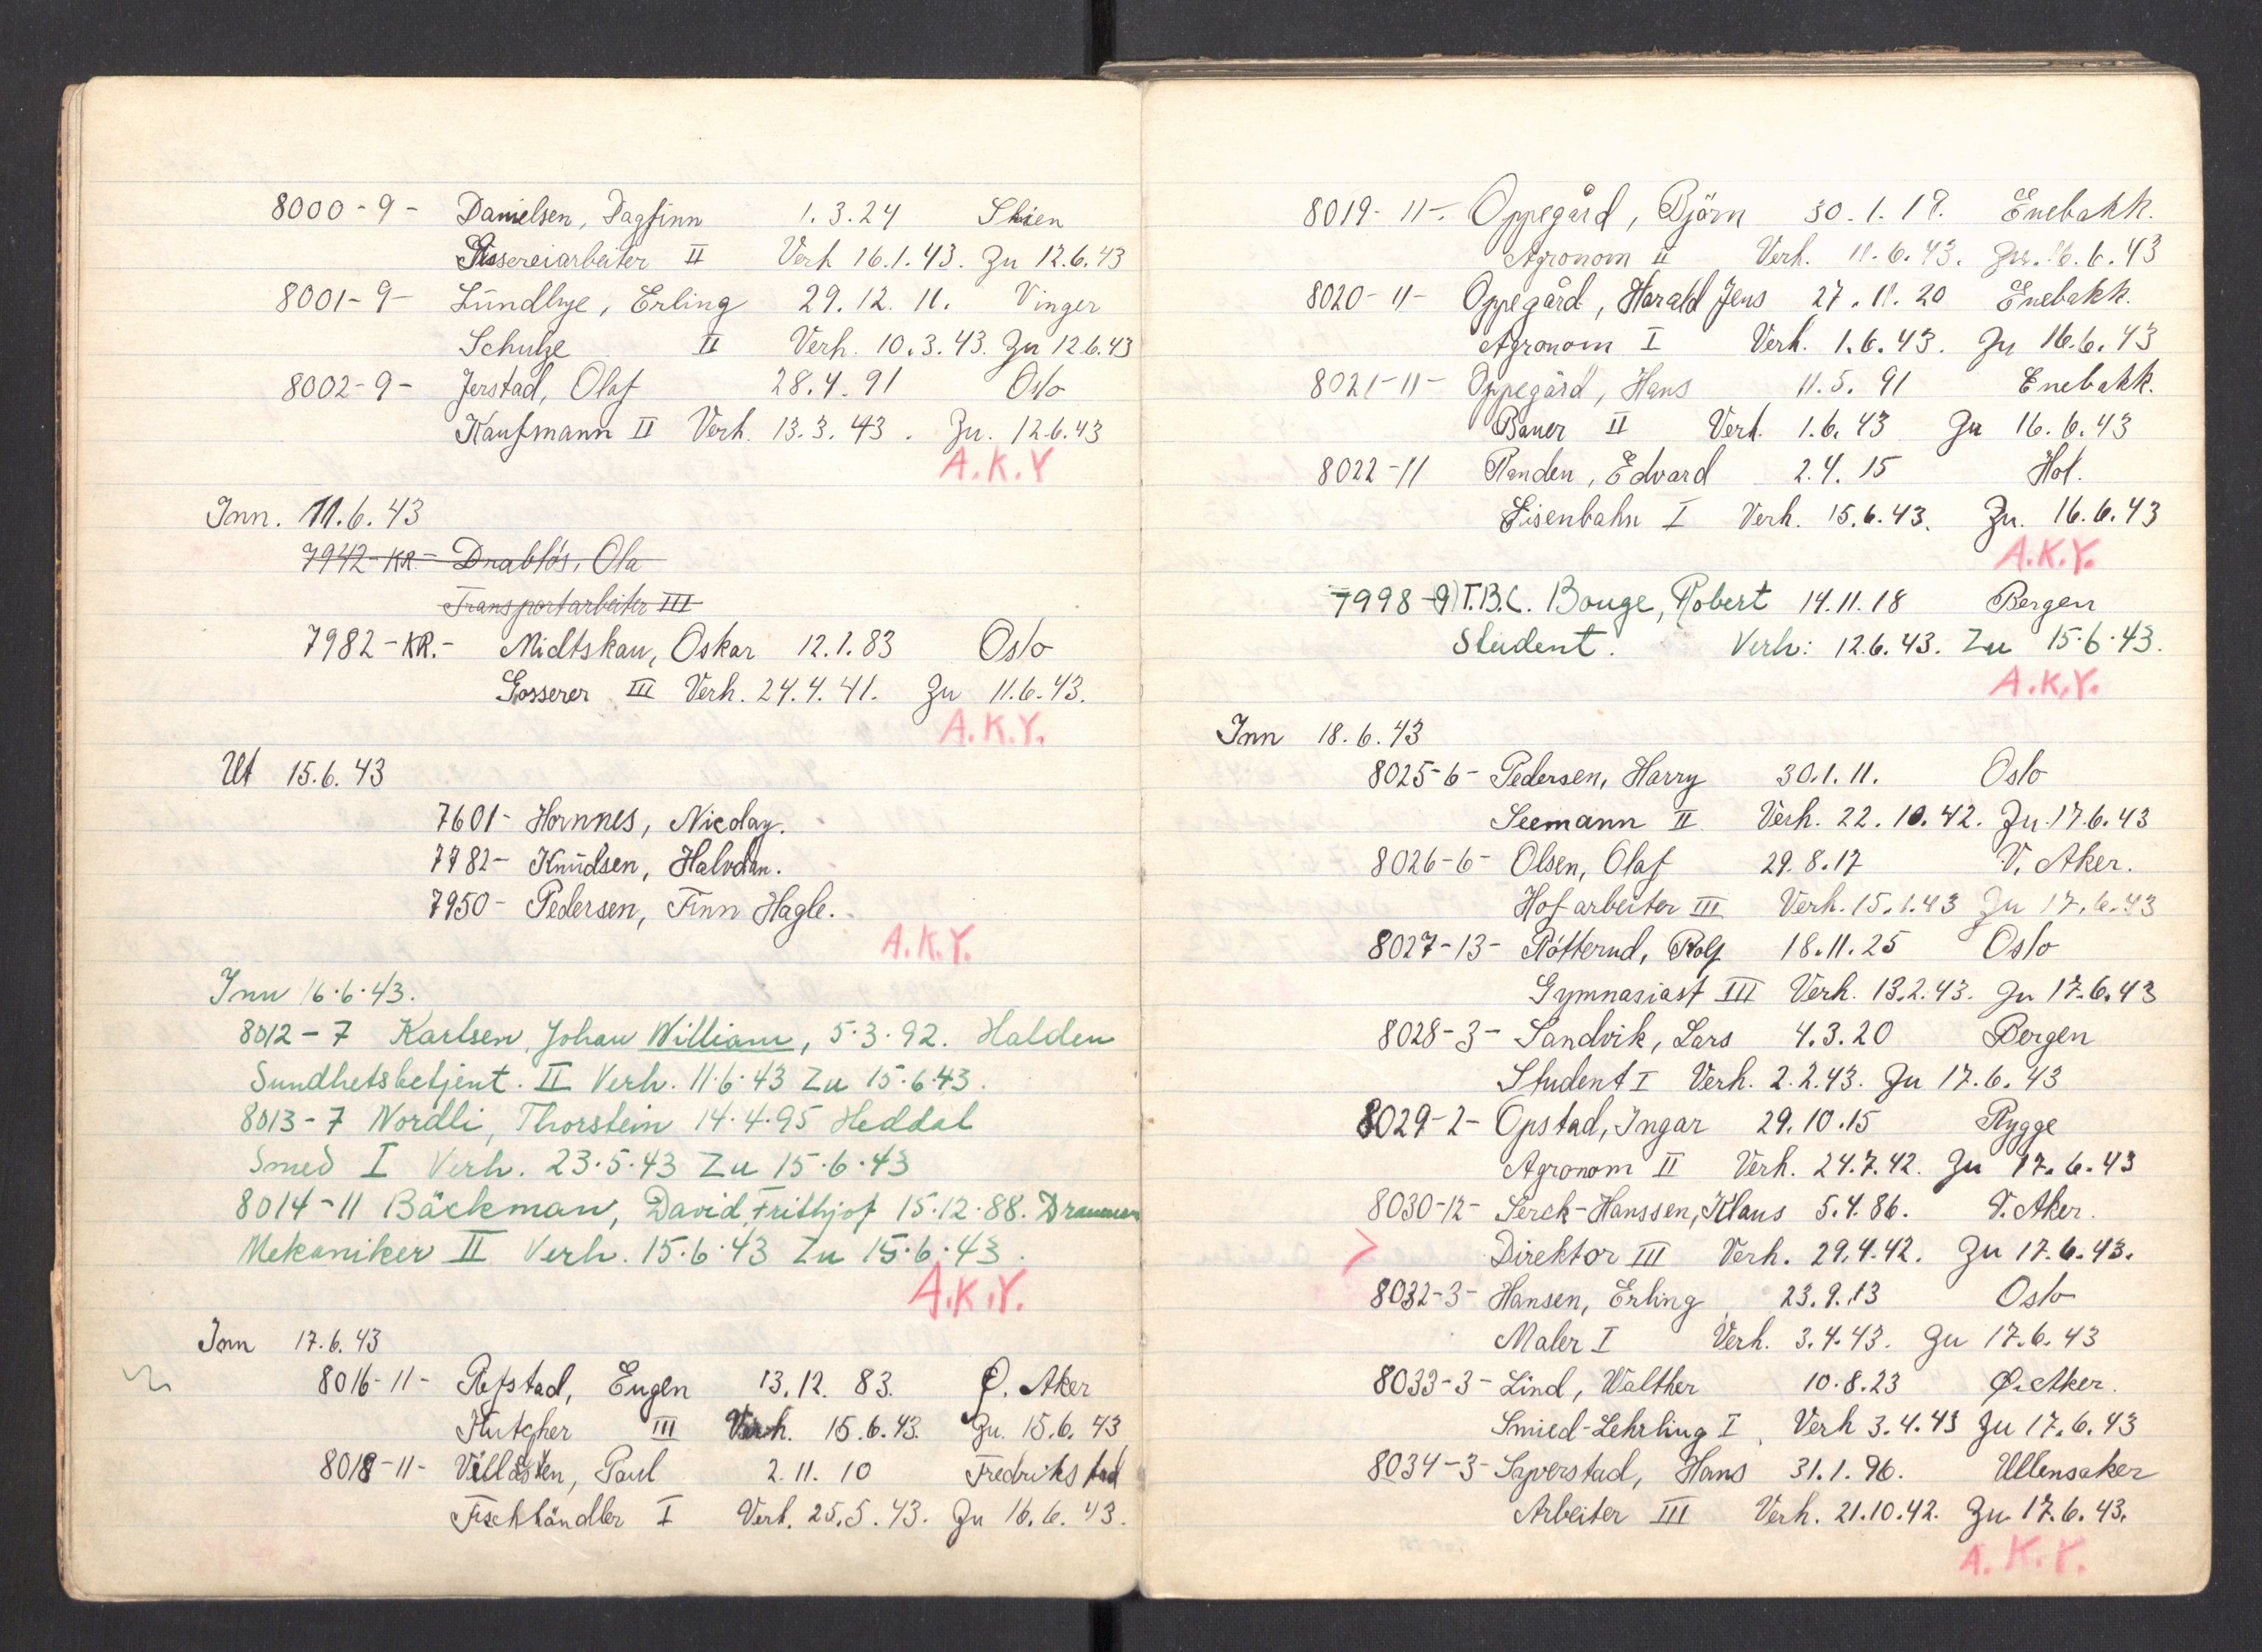 8000-9- Danielsen, Dagfinn 1.3.24 Skien
Giessereiarbeiter II Verh 16.1.43. Zu 12.6.43
8001-9- Lundbye, Erling 29.12.11. Vinger
Schulze II Verh. 10.3.43. Zu 12.6.43
8002-9- Jerstad, Olaf 28.4.91 Oslo
Kaufmann II Verh. 13.3.43. Zu. 12.6.43
A.K.Y
Inn. 11.6.43
7942-KR- Drabløs, Ola
Transportarbeiter III
7982-KR.- Midtskau, Oskar 12.1.83 Oslo
Gosserer III Verh. 24.4.41. Zu 11.6.43.
A.K.Y.
Ut 15.6.43
7601- Hornnes, Nicolay.
7782- Knudsen, Halvdan.
7950- Pedersen, Finn Hagle.
A.K.Y.
Inn 16.6.43.
8012-7 Karlsen, Johan William, 5.3.92. Halden
Sundhetsbetjent. II Verh. 11.6.43 Zu 15.6.43.
8013-7 Nordli, Thorstein 14.4.95 Heddal
Smed I Verh. 23.5.43 Zu 15.6.43
8014-11 Bäckman, David Frithjof 15.12.88. Drammen
Mekaniker II Verh. 15.6.43 Zu 15.6.43.
A.K.Y.
Inn 17.6.43
8016-11- Refstad, Eugen 13.12.83. Ø. Aker
Kutcher III Verh. 15.6.43. Zu. 15.6.43
8018-11- Villåsen, Paul 2.11.10 Fredrikstad
Fischhändler I Verh. 25.5.43. Zu 16.6.43.
8019-11-. Oppegård, Björn 30.1.18. Enebakk.
Agronom II Verh. 11.6.43. Zu. 16.6.43
8020-11- Oppegård, Harald Jens 27.11.20 Enebakk.
Agronom I Verh. 1.6.43. Zu 16.6.43
8021-11- Oppegård, Hans 11.5.91 Enebakk.
Bauer II Verh. 1.6.43 Zu 16.6.43
8022-11 Randen, Edvard 2.4.15 Hol.
Eisenbahn I Verh. 15.6.43. Zu. 16.6.43
A.K.Y.
7998-9) T.B.C. Bouge, Robert 14.11.18 Bergen
Student. Verh: 12.6.43. Zu 15.6.43.
A.K.Y.
Inn 18.6.43
8025-6- Pedersen, Harry 30.1.11. Oslo
Seemann II Verh. 22.10.42. Zu 17.6.43
8026-6- Olsen, Olaf 29.8.17 V. Aker.
Hofarbeiter III Verh. 15.1.43 Zu 17.6.43
8027-13- Rötterud, Rolf 18.11.25 Oslo
Gymnasiast III Verh. 13.2.43. Zu 17.6.43
8028-3- Sandvik, Lars 4.3.20 Bergen
Student I Verh. 2.2.43. Zu 17.6.43
8029-2- Opstad, Ingar 29.10.15 Rygge
Agronom II Verh. 24.7.42. Zu 17.6.43
8030-12- Serck-Hanssen, Klaus 5.4.86. V. Aker.
Direktor III Verh. 29.4.42. Zu 17.6.43.
8032-3- Hansen, Erling 23.9.13 Oslo
Maler I Verh. 3.4.43. Zu 17.6.43
8033-3- Lind, Walther 10.8.23 Ø. Aker.
Smied-Lehrling I Verh 3.4.43 Zu 17.6.43
8034-3- Saverstad, Hans 31.1.96. Ullensaker
Arbeiter III Verh. 21.10.42. Zu 17.6.43.
A.K.Y.